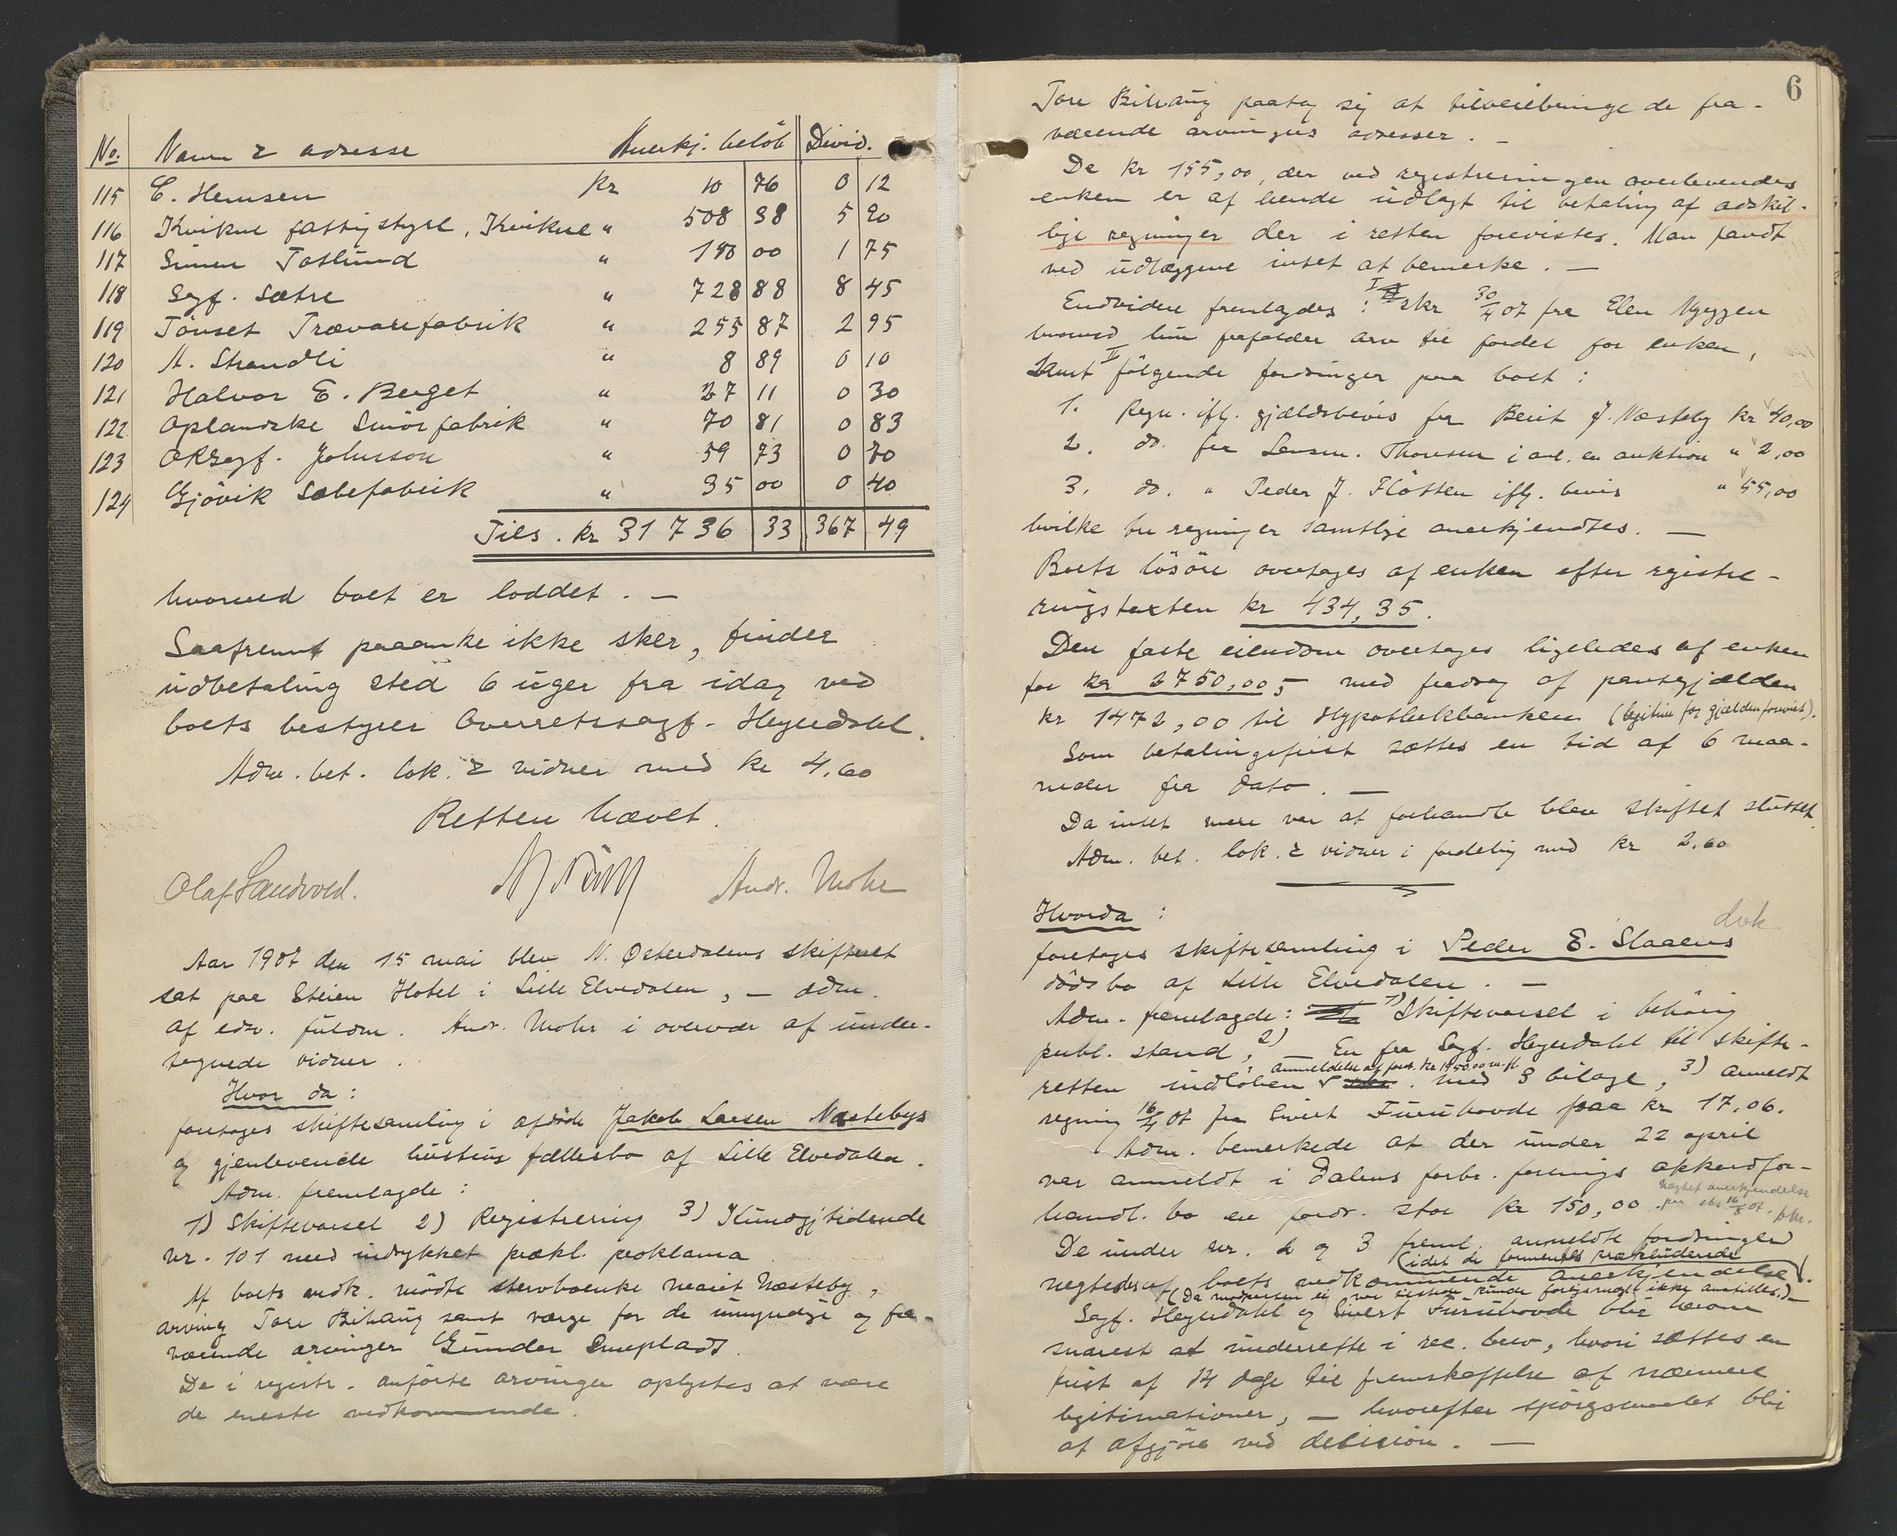 No. Navn & adresse Anerkj. beløb Divid.
115 C. Hemsen kr 10 76 0 12
116 Kvikne fattigstyre, Kvikne " 508 38 5 90
117 Simen Taslund " 150 00 1 75
118 Sagf. Sætre " 728 88 8 45
119 Tönset Trævarefabrik " 255 87 2 95
120 A. Strandli " 8 89 0 10
121 Halvor E. Berget " 27 11 0 30
122 Oplandske Smörfabrik " 70 81 0 83
123 ORsagf. Johnson " 59 73 0 70
124 Gjövik Sæbefabrik " 35 00 0 40
Tils. kr 31 736 33 367 49
hvormed boet er loddet. —
Saafremt paaanke ikke sker, finder
udbetaling sted 6 uger fra idag ved
boets bestyrer Overretssagf. Heyerdahl.
Adm. bet. lok. & vidner med kr 4.60
Retten hævet.
Olaf Sandvold. Andr. Mohr
Aar 1907 den 15 mai blev N. Østerdalens skifteret
sat paa Steien Hotel i Lille Elvedalen, — adm.
af edsv. fuldm. Andr. Mohr i overvær af under-
tegnede vidner.
Hvor da:
foretoges skiftesamling i afdöde Jakob Larsen Næstebys
og gjenlevende hustrus fællesbo af Lille Elvedalen.
Adm. fremlagde:
1) Skiftevarsel 2) Registrering 3) Kundgj.tidende
nr. 101 med indrykket prækl. proklama
Af boets vedk. mödte stervboenke Marit Næsteby,
arving Tore Bihaug samt værge for de umyndige og fra-
værende arvinger Gunder Sneplads.
De i registr. anförte arvinger oplystes at være
de eneste vedkommende.
6
Tore Bihaug paatog sig at tilveiebringe de fra-
værende arvingers adresser. —
De kr 155,00, der ved registreringen overlevendes
enken er af hende udlagt til betaling af adskil-
lige regninger der i retten forevistes. Man fandt
ved udlæggene intet at bemerke. —
Endvidere fremlagdes: I skr 30/4 07 fra Elen Nyeggen
hvorved hun frafalder arv til fordel for enken,
samt II fölgende fordringer paa boet:
1. Regn. ifl. gjældsbevis fra Berit J. Næsteby kr 40,00
2. do. fra Lensm. Thoresen i anl. en auktion " 2,00
3. do. " Peder J. Flötten ifl. bevis " 55,00
hvilke tre regninger samtlige anerkjendtes. —
Boets lösöre overtages af enken efter registre-
ringstaxten kr 434,35.
Den faste eiendom overtages ligeledes af enken
for kr 2750,00, med fradrag af pantegjælden
kr 1472,00 til Hypothekbanken (legitim. for gjælden forevist).
Som betalingsfrist sættes en tid af 6 maa-
neder fra dato. —
Da intet mere var at forhandle blev skiftet sluttet.
Adm. bet. lok. & vidner i fordeling med kr 2.60
Hvorda: dok.
foretoges skiftesamling i Peder E. Slaaens
dödsbo af Lille Elvedalen. —
Adm. fremlagde: 1) Skiftevarsel i behörig
publ. stand, 2) En fra Sagf. Heyerdahl til skifte-
retten indløben anmeldelse af ford. kr 1950.00 m. fl. med 3 bilage, 3) anmeldt
regning 16/4 07 fra Sivert Furuhovde paa kr 17,06.
Adm. bemerkede at der under 22 april
var anmeldt i Dalens forbr. forenings akkordfor-
handl. bo en fordr. stor kr 150,00.
nægtet anerkjendelse
De under nr. 2 og 3 freml. anmeldte fordringer
(idet de formentes ekskluderede)
negtedes af boets vedkommende anerkjendelse.
Sagf. Heyerdahl og Sivert Furuhovde blir herom
snarest at underrette i rec. brev, hvori sættes en
frist af 14 dage til fremskaffelse af nærmere
legitimationer, — hvorefter spörgsmaalet blir
at afgjöre ved decision. —